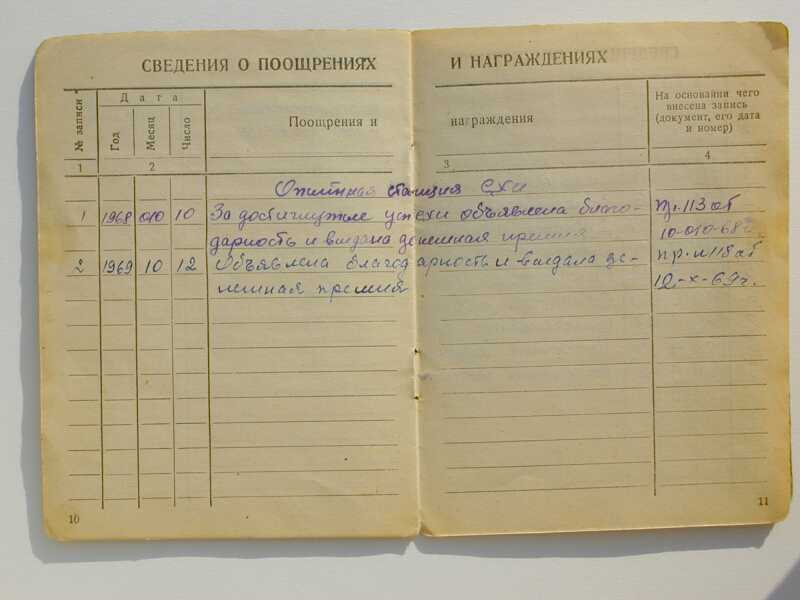 СВЕДЕНИЯ О ПООЩРЕНИЯХ И НАГРАЖДЕНИЯХ
№ записи
Дата
Год
Месяц
Число
Поощрения и награждения
На основании чего
внесена запись
(документ, его дата
и номер)
1 2 3 4
Опытная станция СХИ
1 1968 010 10 За достигнутые успехи объявлена благо- Пр. 113 от
дарность и выдана денежная премия 10-010-68г.
2 1969 10 12 Объявлена благодарность и выдана де- Пр. н 118 от
нежная премия 12-X-69г.
10
11